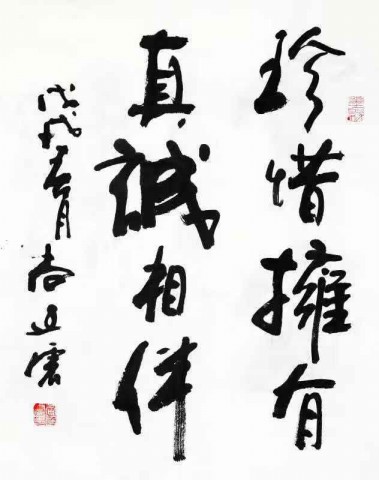 珍惜擁有
真誠相伴
戊戌春月